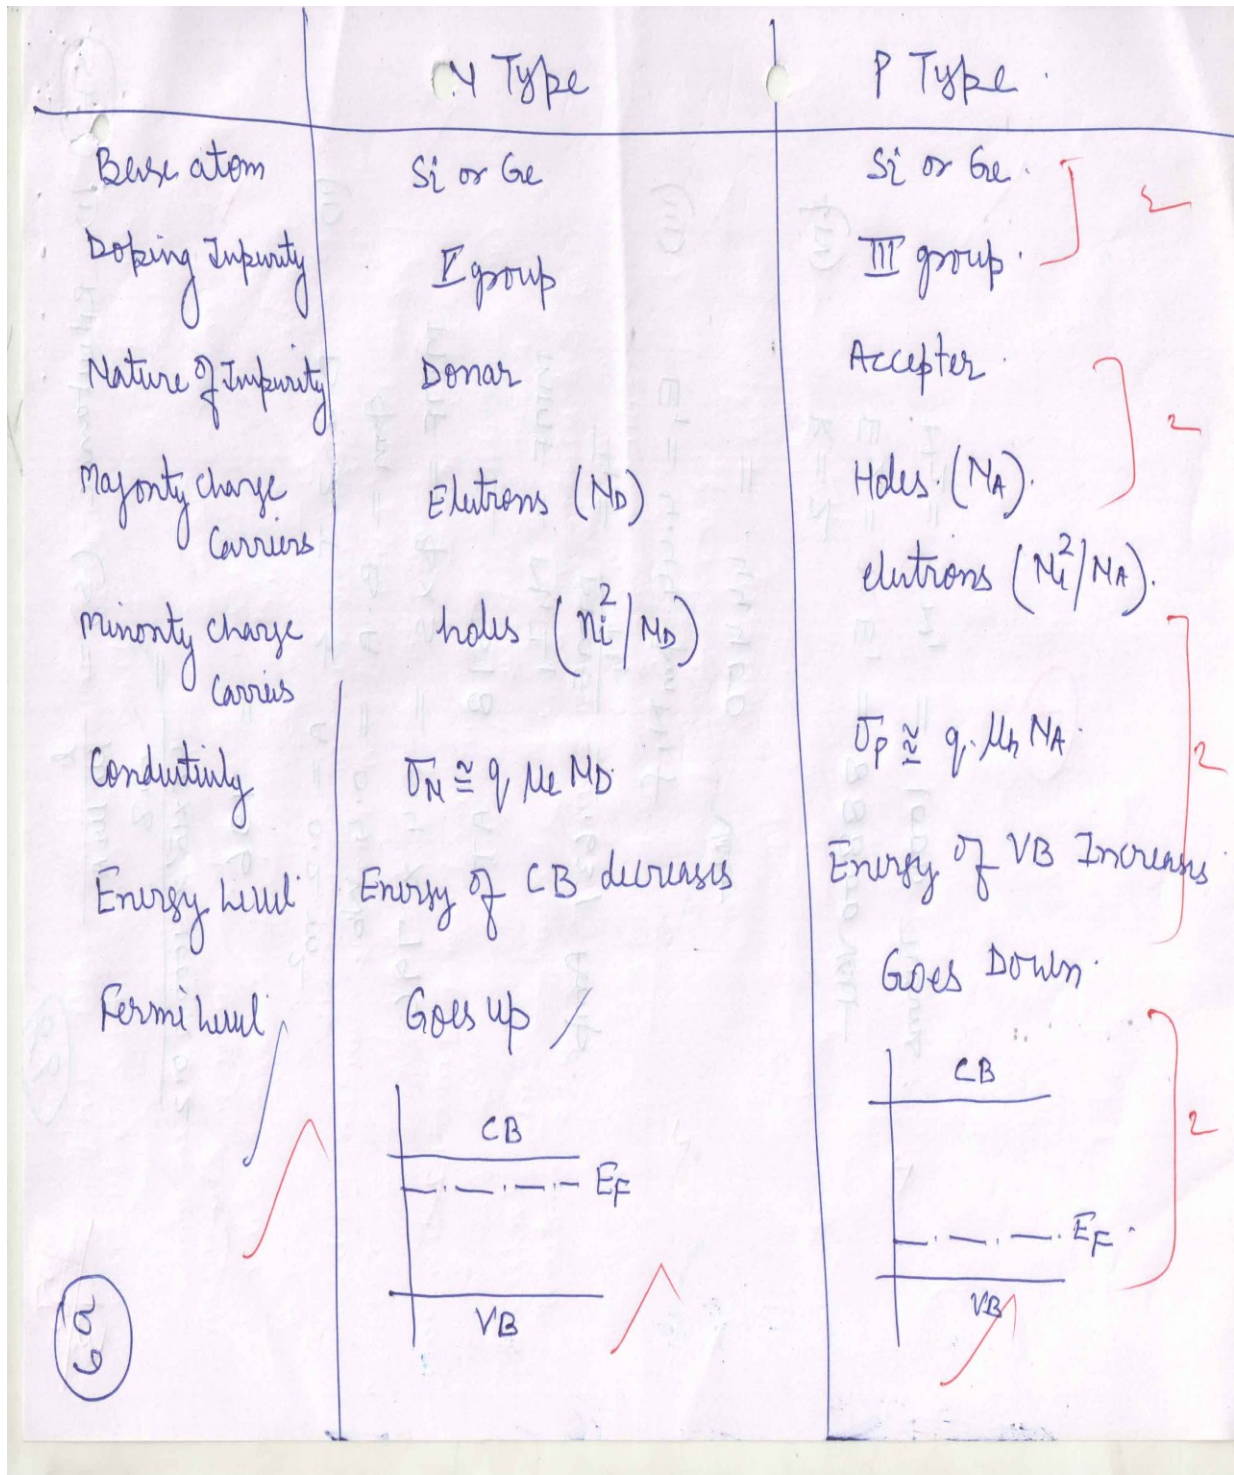 N Type P Type
Base atom Si or Ge Si or Ge
2
Doping Impurity V group III group
Nature of Impurity Donar Accepter
2
Majority charge Elutrons (ND) Holes (NA)
Carriers
Minority charge holes (ni²/ND) elutrons (Ni²/NA)
Carries
Conductivity σN ≅ q μe ND σP ≅ q. μh NA
2
Energy Level Energy of CB decreases Energy of VB Increases
Fermi Level Goes up Goes Down
CB CB
2
EF EF
VB VB
6a